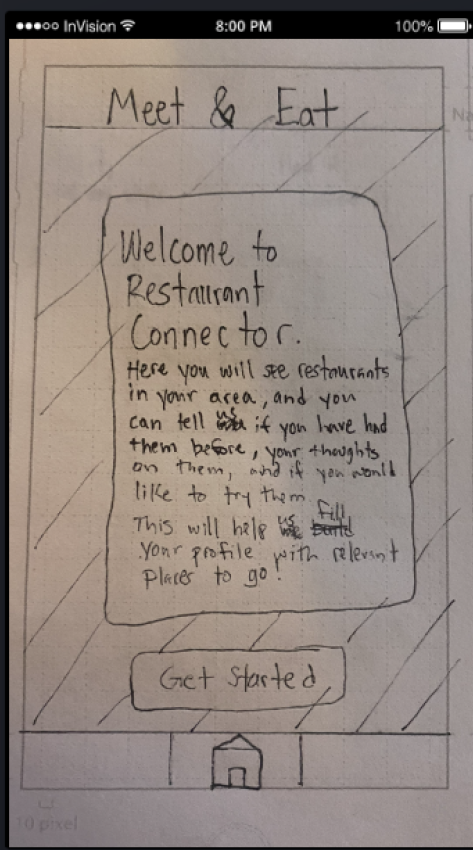 ●●●○○ InVision 8:00 PM 100%
Meet & Eat
Welcome to
Restaurant
Connector.
Here you will see restaurants
in your area, and you
can tell us if you have had
them before, your thoughts
on them, and if you would
like to try them.
This will help us fill
your profile with relevant
places to go!
Get Started
10 pixel